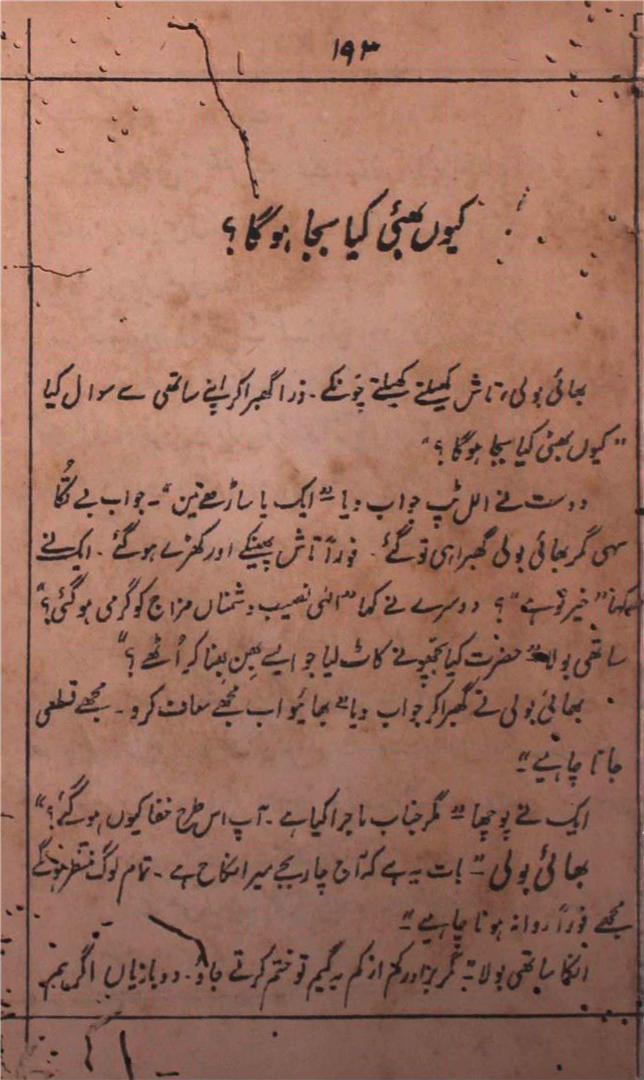 ۱۹۳
کیوں بھئی کیا بجا ہوگا؟
بھائی بولی، تاش کھیلتے کھیلتے چونکے۔ ذرا گھبرا کر اپنے ساتھی سے سوال کیا
"کیوں بھئی کیا بجا ہوگا؟"
دوست نے الل ٹپ جواب دیا "ایک یا ساڑھے تین"۔ جواب بے تُکا
سہی مگر بھائی بولی گھبرا ہی تو گئے۔ فوراً تاش پھینکے اور کھڑے ہوگئے۔ ایک نے
کہا "خیر تو ہے"؟ دوسرے نے کہا "الٰہی نصیب دشمناں مزاج کو گرمی ہوگئی؟"
ساتھی بولا "حضرت کیا بچھو نے کاٹ لیا جو ایسے بھن بھنا کر اُٹھے؟"
بھائی بولی نے گھبرا کر جواب دیا "بھائیو اب مجھے معاف کرو۔ مجھے قطعی
جانا چاہیے"۔
ایک نے پوچھا "مگر جناب ماجرا کیا ہے۔ آپ اس طرح خفا کیوں ہوگئے؟"
بھائی بولی "بات یہ ہے کہ آج چار بجے میرا نکاح ہے۔ تمام لوگ منتظر ہونگے
مجھے فوراً روانہ ہونا چاہیے"۔
انکا ساتھی بولا "مگر برادر کم از کم یہ گیم تو ختم کرتے جاؤ۔ دو بازیاں اگر ہم